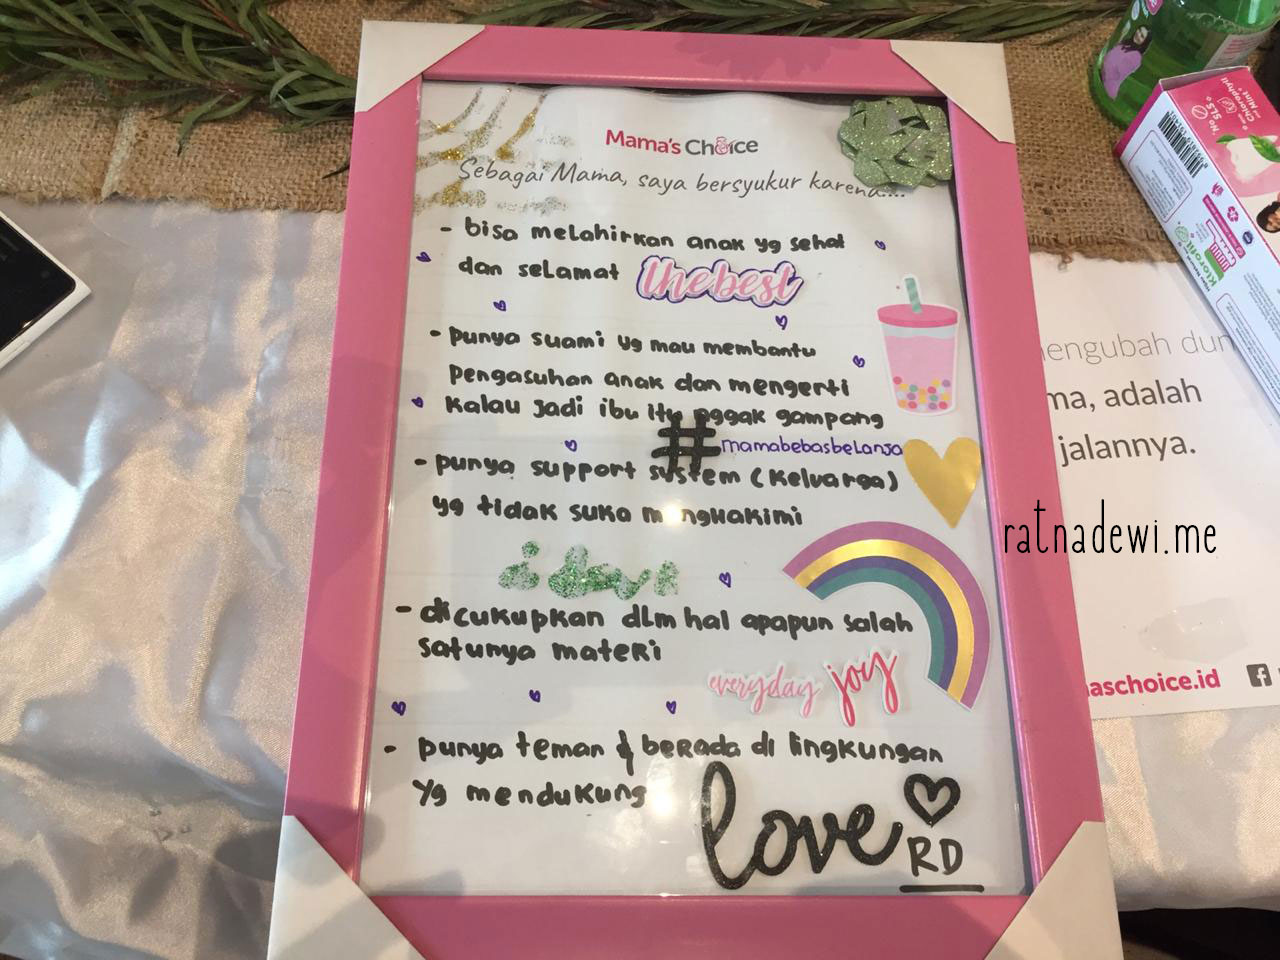 Mama's Choice
Sebagai Mama, saya bersyukur karena....
- bisa melahirkan anak yg sehat
dan selamat
the best
- punya suami yg mau membantu
pengasuhan anak dan mengerti
kalau jadi ibu itu nggak gampang
#mamabebasbelanja
- punya support system (keluarga)
yg tidak suka menghakimi
- dicukupkan dlm hal apapun salah
satunya materi
everyday joy
- punya teman & berada di lingkungan
yg mendukung
love
RD
ratnadewi.me
No SLS
Chlorophyll
Mint
Klorofil
mengubah dun
ma, adalah
jalannya.
maschoice.id